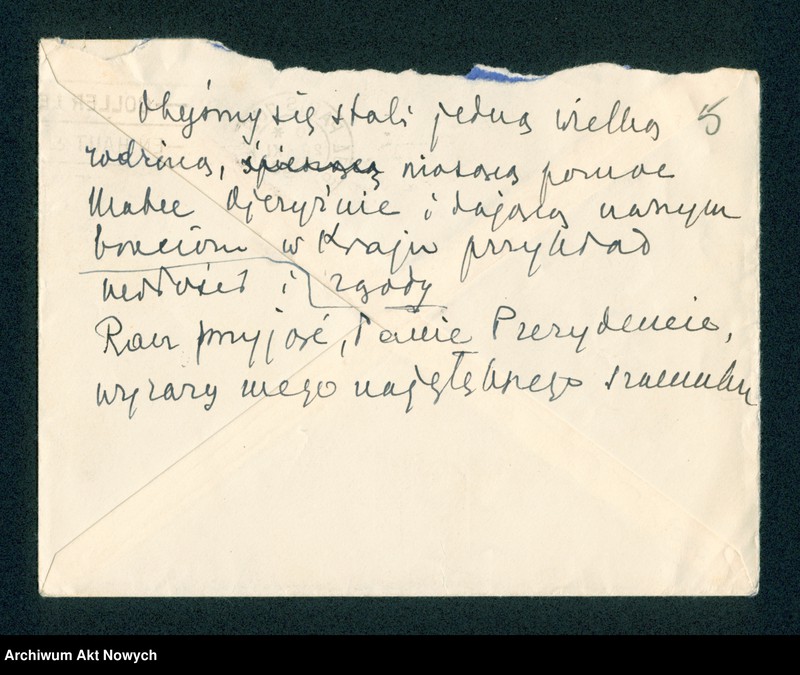 Obyśmy się stali jedną wielką 5
rodziną, śpieszącą niosącą pomoc
Matce Ojczyźnie i dającą naszym
braciom w Kraju przykład
miłości i zgody
Racz przyjąć, Panie Prezydencie,
wyrazy mego najgłębszego szacunku
Archiwum Akt Nowych